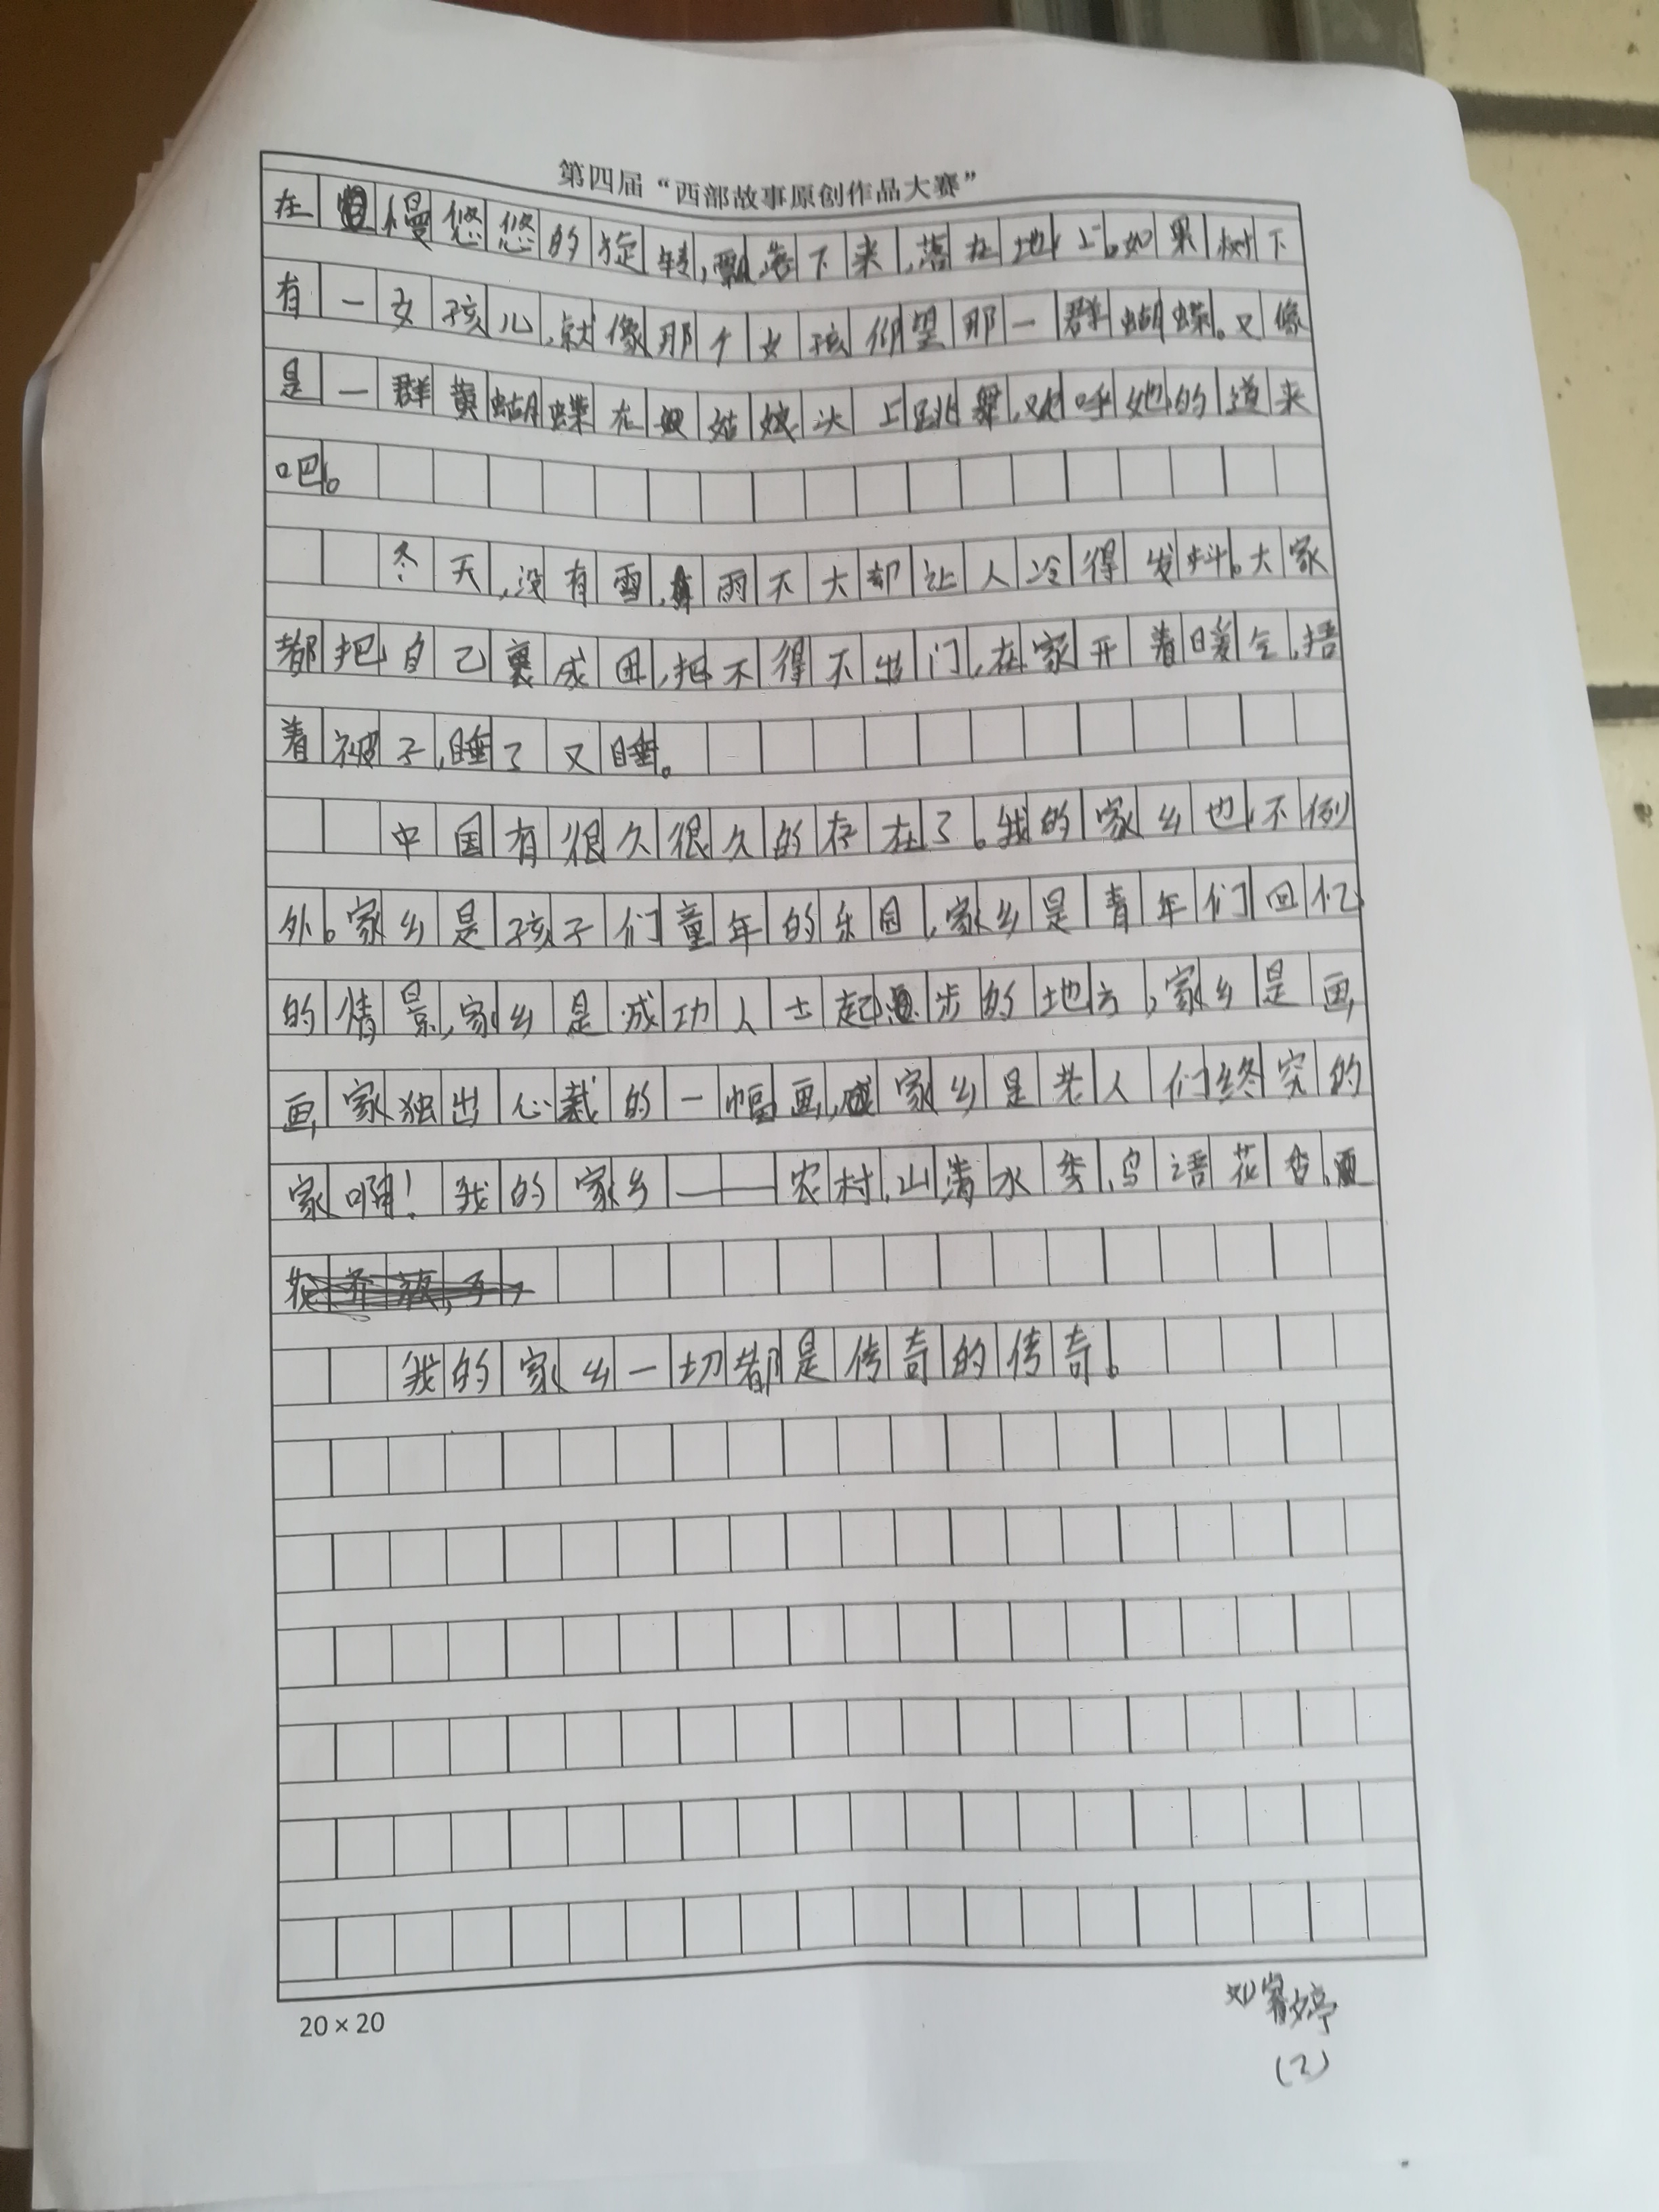 第四届“西部故事原创作品大赛”
在慢悠悠的旋转，飘落下来，落在地上。如果树下
有一女孩儿，就像那个女孩仰望那一群蝴蝶。又像
是一群黄蝴蝶在姑娘头上跳舞，欢呼她的道来
吧。
冬天，没有雪，雨不大却让人冷得发抖。大家
都把自己裹成团，把不得不出门，在家开着暖气，捂
着被子，睡了又睡。
中国有很久很久的存在了。我的家乡也不例
外。家乡是孩子们童年的乐园，家乡是青年们回忆
的情景，家乡是成功人士起步的地方，家乡是画
画家独出心裁的一幅画，家乡是老人们终究的
家啊！我的家乡——农村，山清水秀，鸟语花香，
我的家乡一切都是传奇的传奇。
20×20
(2)